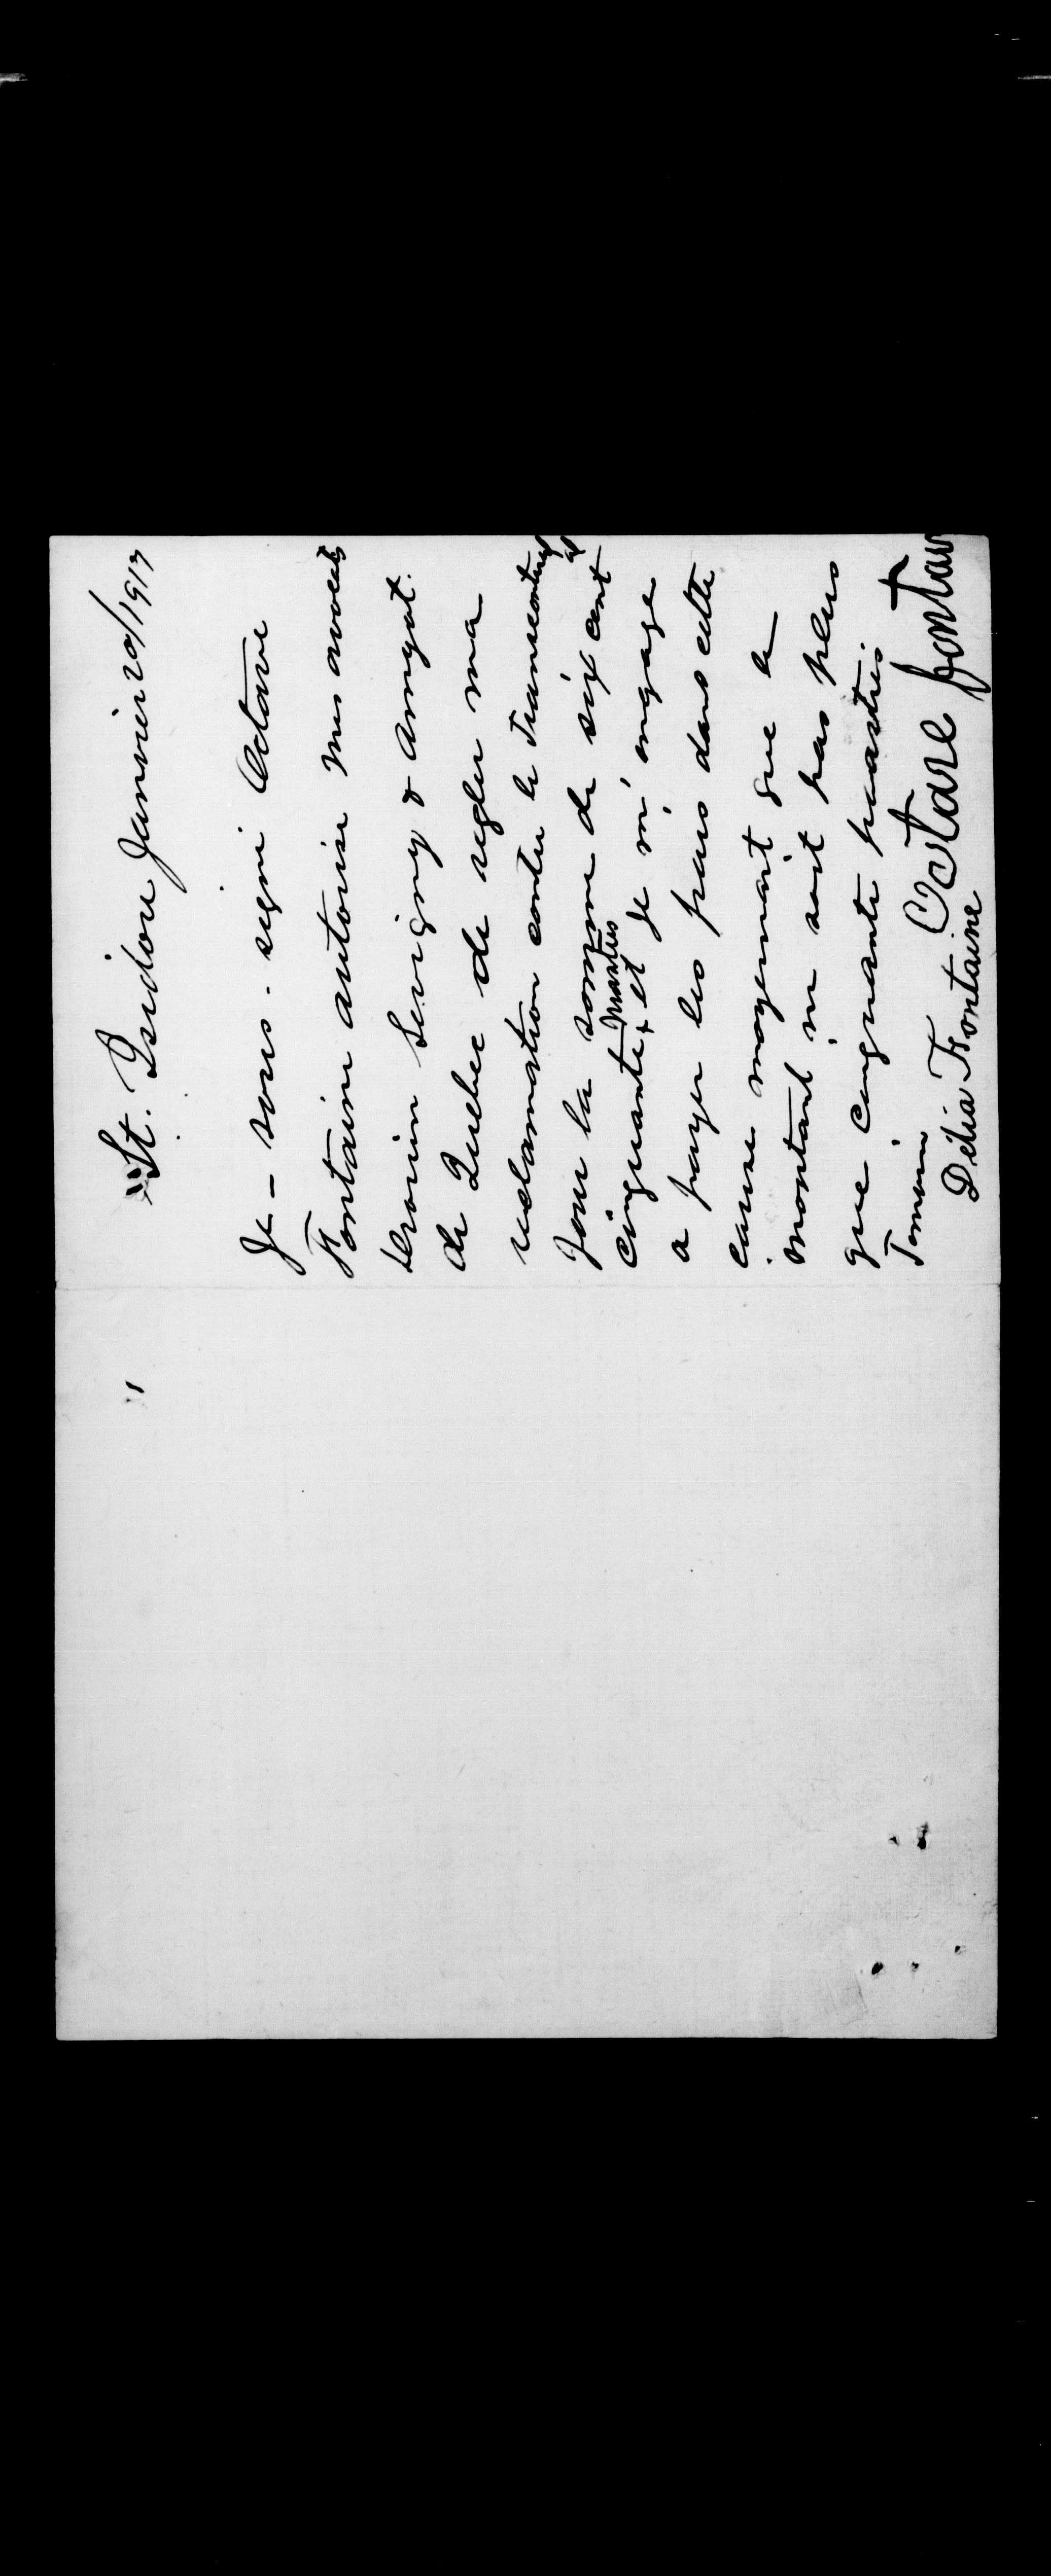 St. Isidore Janvier 20/1917
Je - sous - signé Octave
Fontaine autorise mes avocats
Drouin Sevigny & Amyot.
de Quebec de regler ma
reclamation contre le Transcontinental
pour la somme de six cent
cinquante + piastres et je m'engage
a payer les frais dans cette
cause moyennant que le
montant n'en soit pas plus
que cinquante piastres.
Temoin Octave fontain
Délia Fontaine